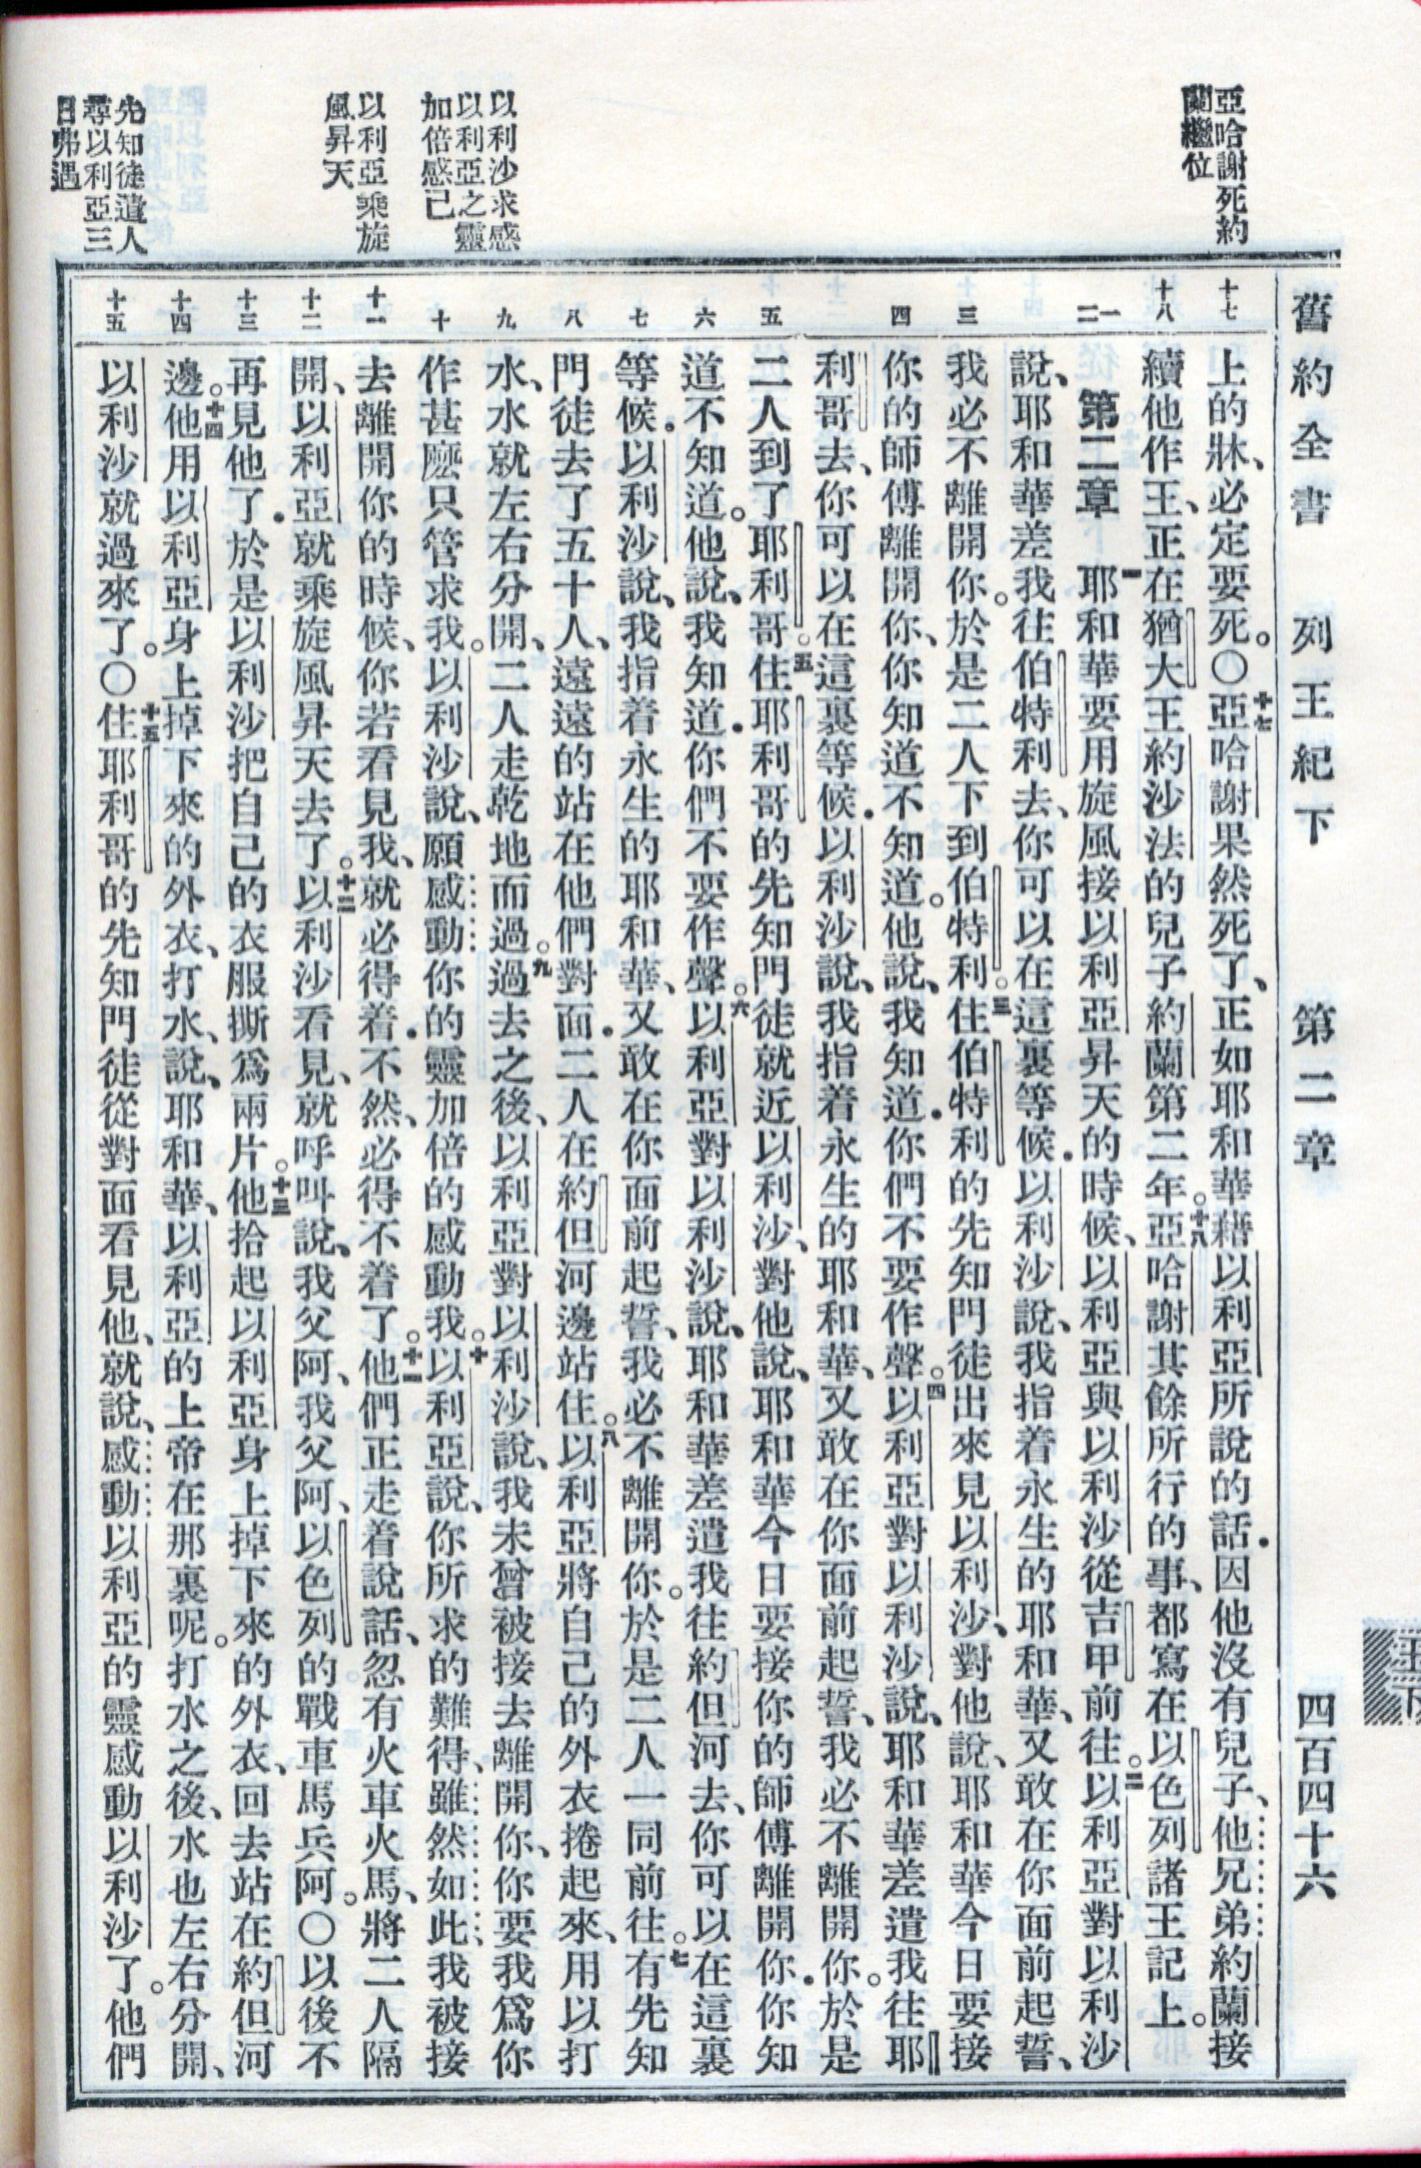 舊約全書　列王紀下　第二章　四百四十六
亞哈謝死約
蘭繼位
以利沙求感
以利亞之靈
加倍感己
以利亞乘旋
風昇天
先知徒遣人
尋以利亞三
日弗遇
十七
上的牀、必定要死。〇十七亞哈謝果然死了、正如耶和華藉以利亞所說的話．因他沒有兒子、他兄弟約蘭接
十八
續他作王、正在猶大王約沙法的兒子約蘭第二年。十八亞哈謝其餘所行的事、都寫在以色列諸王記上。
一二
第二章　一耶和華要用旋風接以利亞昇天的時候、以利亞與以利沙從吉甲前往。二以利亞對以利沙
說、耶和華差我往伯特利去、你可以在這裏等候．以利沙說、我指着永生的耶和華、又敢在你面前起誓、
三
我必不離開你。於是二人下到伯特利。三住伯特利的先知門徒出來見以利沙、對他說、耶和華今日要接
四
你的師傅離開你、你知道不知道。他說、我知道．你們不要作聲。四以利亞對以利沙說、耶和華差遣我往耶
利哥去、你可以在這裏等候．以利沙說、我指着永生的耶和華、又敢在你面前起誓、我必不離開你。於是
五
二人到了耶利哥。五住耶利哥的先知門徒就近以利沙、對他說、耶和華今日要接你的師傅離開你．你知
六
道不知道。他說、我知道．你們不要作聲。六以利亞對以利沙說、耶和華差遣我往約但河去、你可以在這裏
七
等候．以利沙說、我指着永生的耶和華、又敢在你面前起誓、我必不離開你。於是二人一同前往。七有先知
八
門徒去了五十人、遠遠的站在他們對面．二人在約但河邊站住。八以利亞將自己的外衣捲起來、用以打
九
水、水就左右分開、二人走乾地而過。九過去之後、以利亞對以利沙說、我未曾被接去離開你、你要我爲你
十
作甚麽只管求我。以利沙說、願感動你的靈加倍的感動我。十以利亞說、你所求的難得、雖然如此、我被接
十一
去離開你的時候、你若看見我、就必得着．不然、必得不着了。十一他們正走着說話、忽有火車火馬、將二人隔
十二
開、以利亞就乘旋風昇天去了。十二以利沙看見、就呼叫說、我父阿、我父阿、以色列的戰車馬兵阿。〇以後不
十三
再見他了．於是以利沙把自己的衣服撕爲兩片。十三他拾起以利亞身上掉下來的外衣、回去站在約但河
十四
邊。十四他用以利亞身上掉下來的外衣、打水、說、耶和華、以利亞的上帝在那裏呢。打水之後、水也左右分開、
十五
以利沙就過來了。〇十五住耶利哥的先知門徒從對面看見他、就說、感動以利亞的靈感動以利沙了。他們
王下